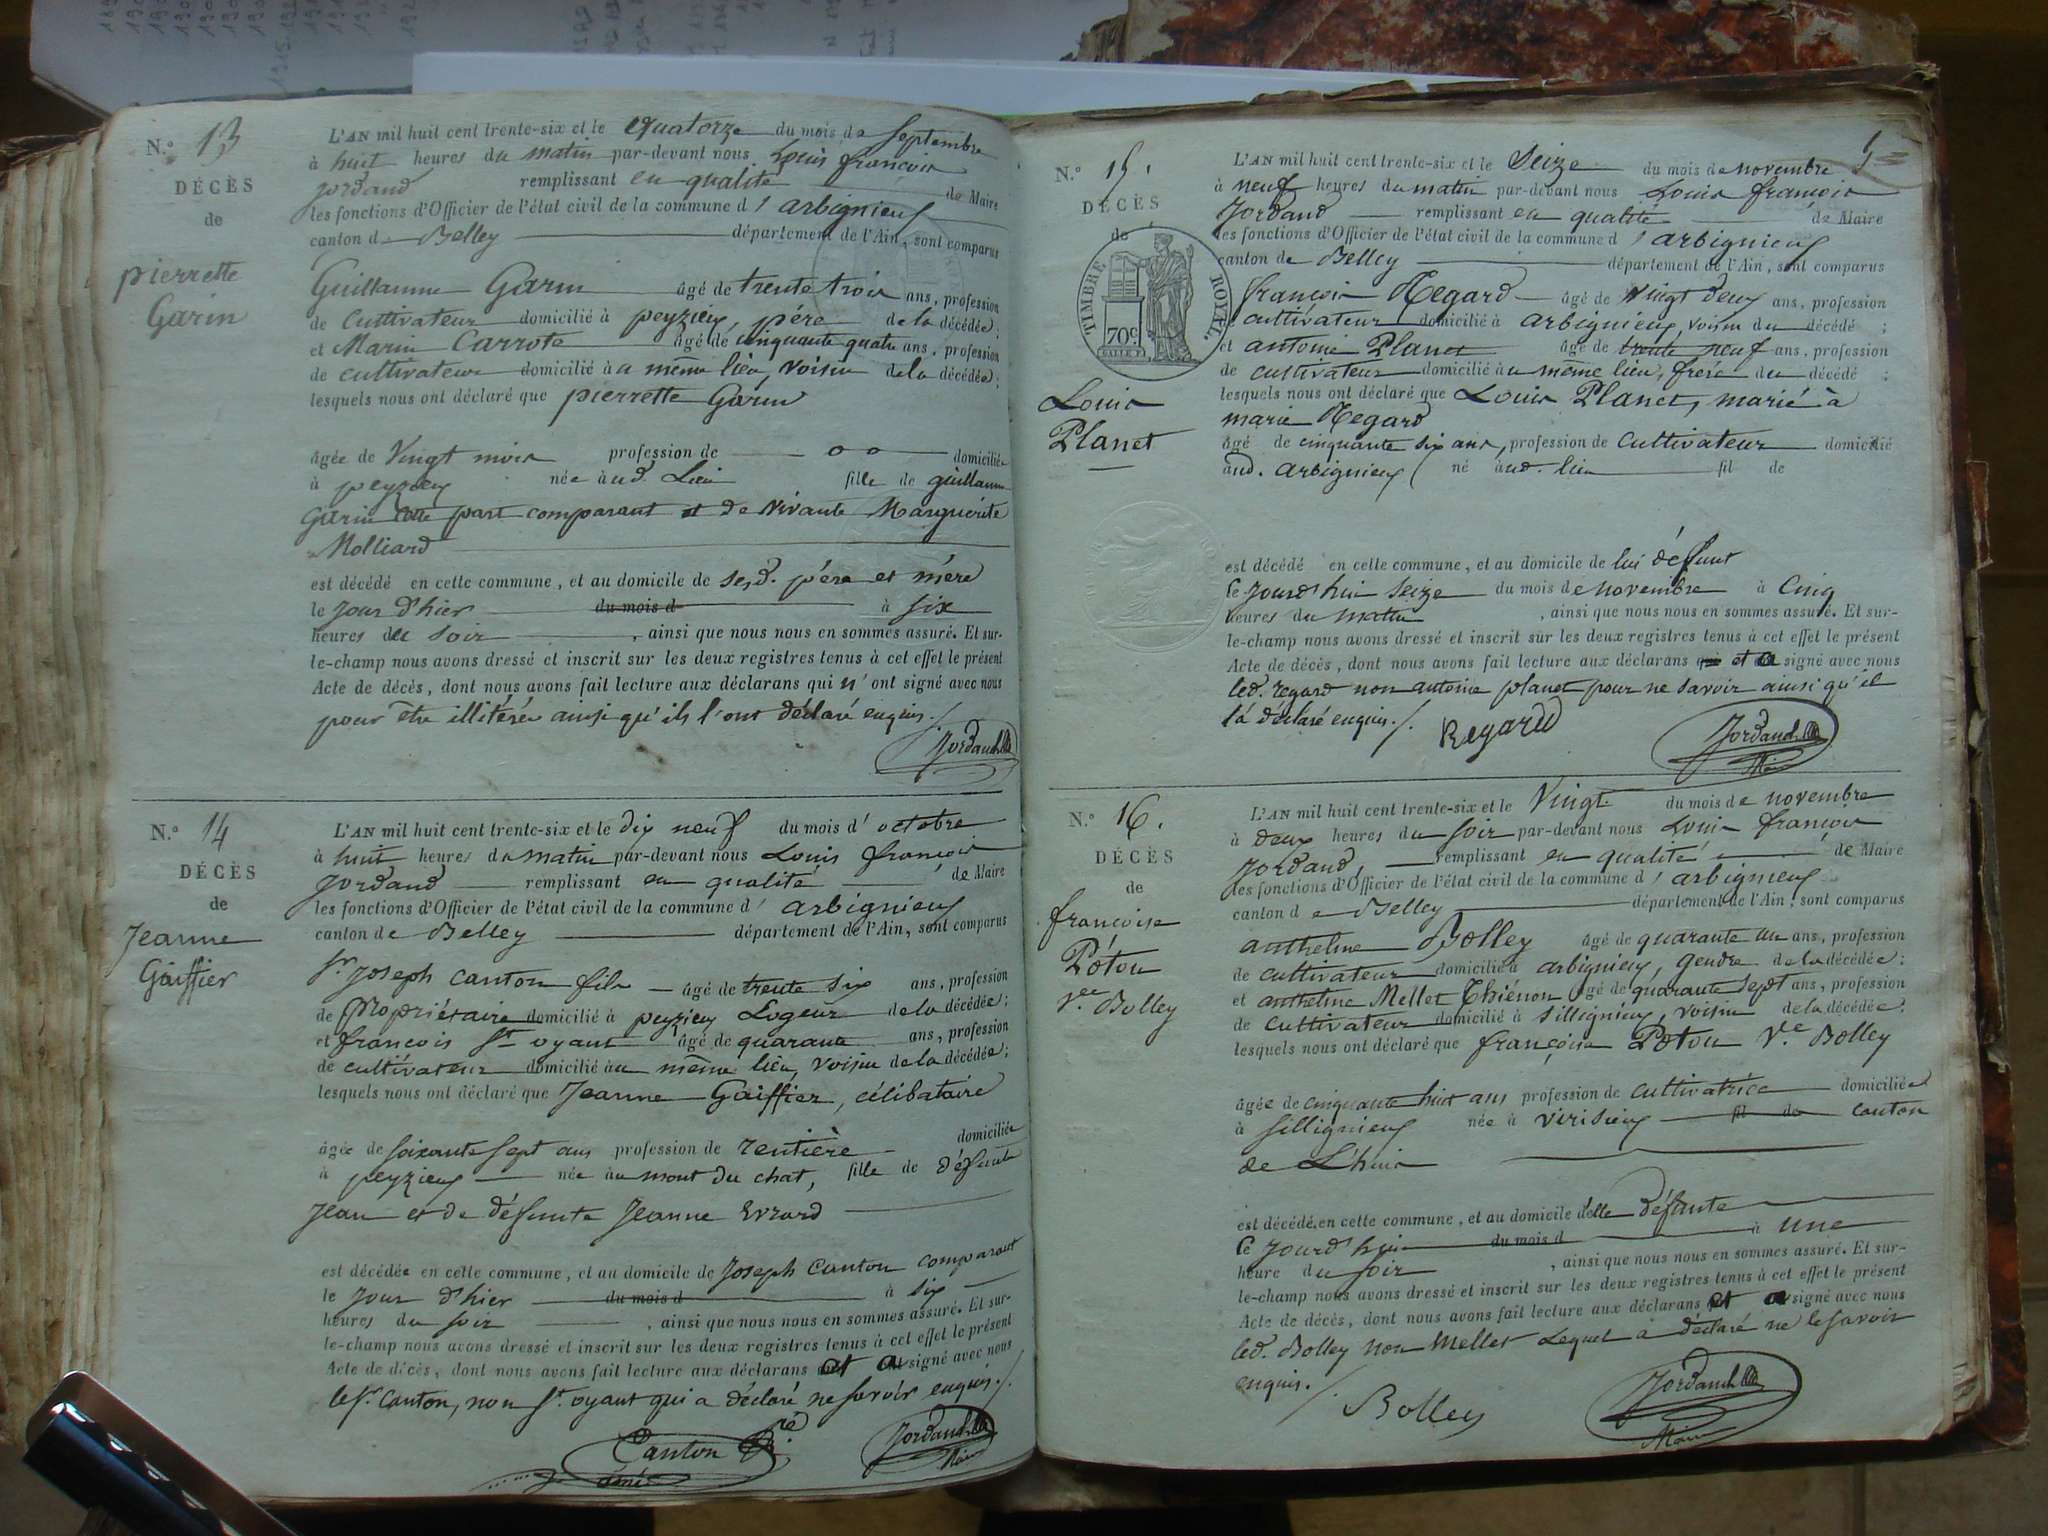 N.º 13
DÉCÈS
de
pierrette
Garin
L'AN mil huit cent trente-six et le quatorze du mois de septembre
à huit heures du matin par-devant nous Louis françois
Jordand remplissant en qualité de Maire
les fonctions d'Officier de l'état civil de la commune d'arbignieux
canton de Belley département de l'Ain, sont comparus
Guillaume Garin âgé de trente trois ans, profession
de cultivateur domicilié à peyzieu, père de la décédée;
et Marin Carrote âgé de cinquante quatre ans, profession
de cultivateur domicilié au même lieu, voisin de la décédée;
lesquels nous ont déclaré que pierrette Garin
âgée de vingt mois profession de domiciliée
à peyzieu née aud. Lieu fille de guillaume
Garin cette part comparant et de vivante Marguerite
Molliard
est décédé en cette commune, et au domicile de sesd. père et mère
le jour d'hier du mois d à six
heures du soir, ainsi que nous nous en sommes assuré. Et sur-
le-champ nous avons dressé et inscrit sur les deux registres tenus à cet effet le présent
Acte de décès, dont nous avons fait lecture aux déclarans qui n'ont signé avec nous
pour être illitérés ainsi qu'ils l'ont déclaré enquis./.
Jordand
N.º 14
DÉCÈS
de
Jeanne
Gaiffier
L'AN mil huit cent trente-six et le dix neuf du mois d'octobre
à huit heures du matin par-devant nous Louis françois
Jordand remplissant en qualité de Maire
les fonctions d'Officier de l'état civil de la commune d'arbignieux
canton de Belley département de l'Ain, sont comparus
Sr. Joseph Canton fils âgé de trente six ans, profession
de Propriétaire domicilié à peyzieu Logeur de la décédée;
et francois St. oyant âgé de quarante ans, profession
de cultivateur domicilié au même lieu, voisin de la décédée;
lesquels nous ont déclaré que Jeanne Gaiffier, célibataire
âgée de soixante sept ans profession de rentière domiciliée
à peyzieu née au mont du chat, fille de défunte
Jean et de défunte Jeanne Evrard
est décédée en cette commune, et au domicile de Joseph Canton comparant
le jour d'hier du mois d à six
heures du soir, ainsi que nous nous en sommes assuré. Et sur-
le-champ nous avons dressé et inscrit sur les deux registres tenus à cet effet le présent
Acte de décès, dont nous avons fait lecture aux déclarans et a signé avec nous
le Sr. Canton, non St. oyant qui a déclaré ne savoir enquis./.
Canton
Jordand
Maire
5
N.º 15.
DÉCÈS
de
TIMBRE ROYAL
70c.
Louis
Planet
L'AN mil huit cent trente-six et le Seize du mois de novembre
à neuf heures du matin par-devant nous Louis françois
Jordand remplissant en qualité de Maire
les fonctions d'Officier de l'état civil de la commune d'arbignieux
canton de Belley département de l'Ain, sont comparus
françois Regard âgé de vingt deux ans, profession
de cultivateur domicilié à arbignieux, voisin du décédé;
et antoine Planet âgé de trente neuf ans, profession
de cultivateur domicilié au même lieu, frère du décédé;
lesquels nous ont déclaré que Louis Planet, marié à
marie Regard
âgé de cinquante six ans, profession de cultivateur domicilié
aud. arbignieux né aud. lieu fil de
est décédé en cette commune, et au domicile de lui défunt
ce jourd'hui seize du mois de novembre à cinq
heures du matin, ainsi que nous nous en sommes assuré. Et sur-
le-champ nous avons dressé et inscrit sur les deux registres tenus à cet effet le présent
Acte de décès, dont nous avons fait lecture aux déclarans qui et a signé avec nous
led. regard non antoine planet pour ne savoir ainsi qu'il
l'a déclaré enquis./.
Regard
Jordand
Maire
N.º 16.
DÉCÈS
de
françoise
Pôton
Vee. Bolley
L'AN mil huit cent trente-six et le Vingt du mois de novembre
à deux heures du soir par-devant nous Louis françois
Jordand, remplissant en qualité de Maire
les fonctions d'Officier de l'état civil de la commune d'arbignieux
canton de Belley département de l'Ain, sont comparus
anthelme Bolley âgé de quarante un ans, profession
de cultivateur domicilié à arbignieu, gendre de la décédée;
et anthelme Mellet Thiénon âgé de quarante sept ans, profession
de cultivateur domicilié à sillignieux, voisin de la décédée;
lesquels nous ont déclaré que françoise Pôton Ve. Bolley
âgée de cinquante huit ans profession de cultivatrice domiciliée
à sillignieux née à virisieu fil de canton
de L'huis
est décédé en cette commune, et au domicile d'elle défunte
ce jourd'hui du mois d à une
heure du soir, ainsi que nous nous en sommes assuré. Et sur-
le-champ nous avons dressé et inscrit sur les deux registres tenus à cet effet le présent
Acte de décès, dont nous avons fait lecture aux déclarans et a signé avec nous
led. Bolley non Mellet Lequel a déclaré ne le savoir
enquis./.
Bolley
Jordand
Maire